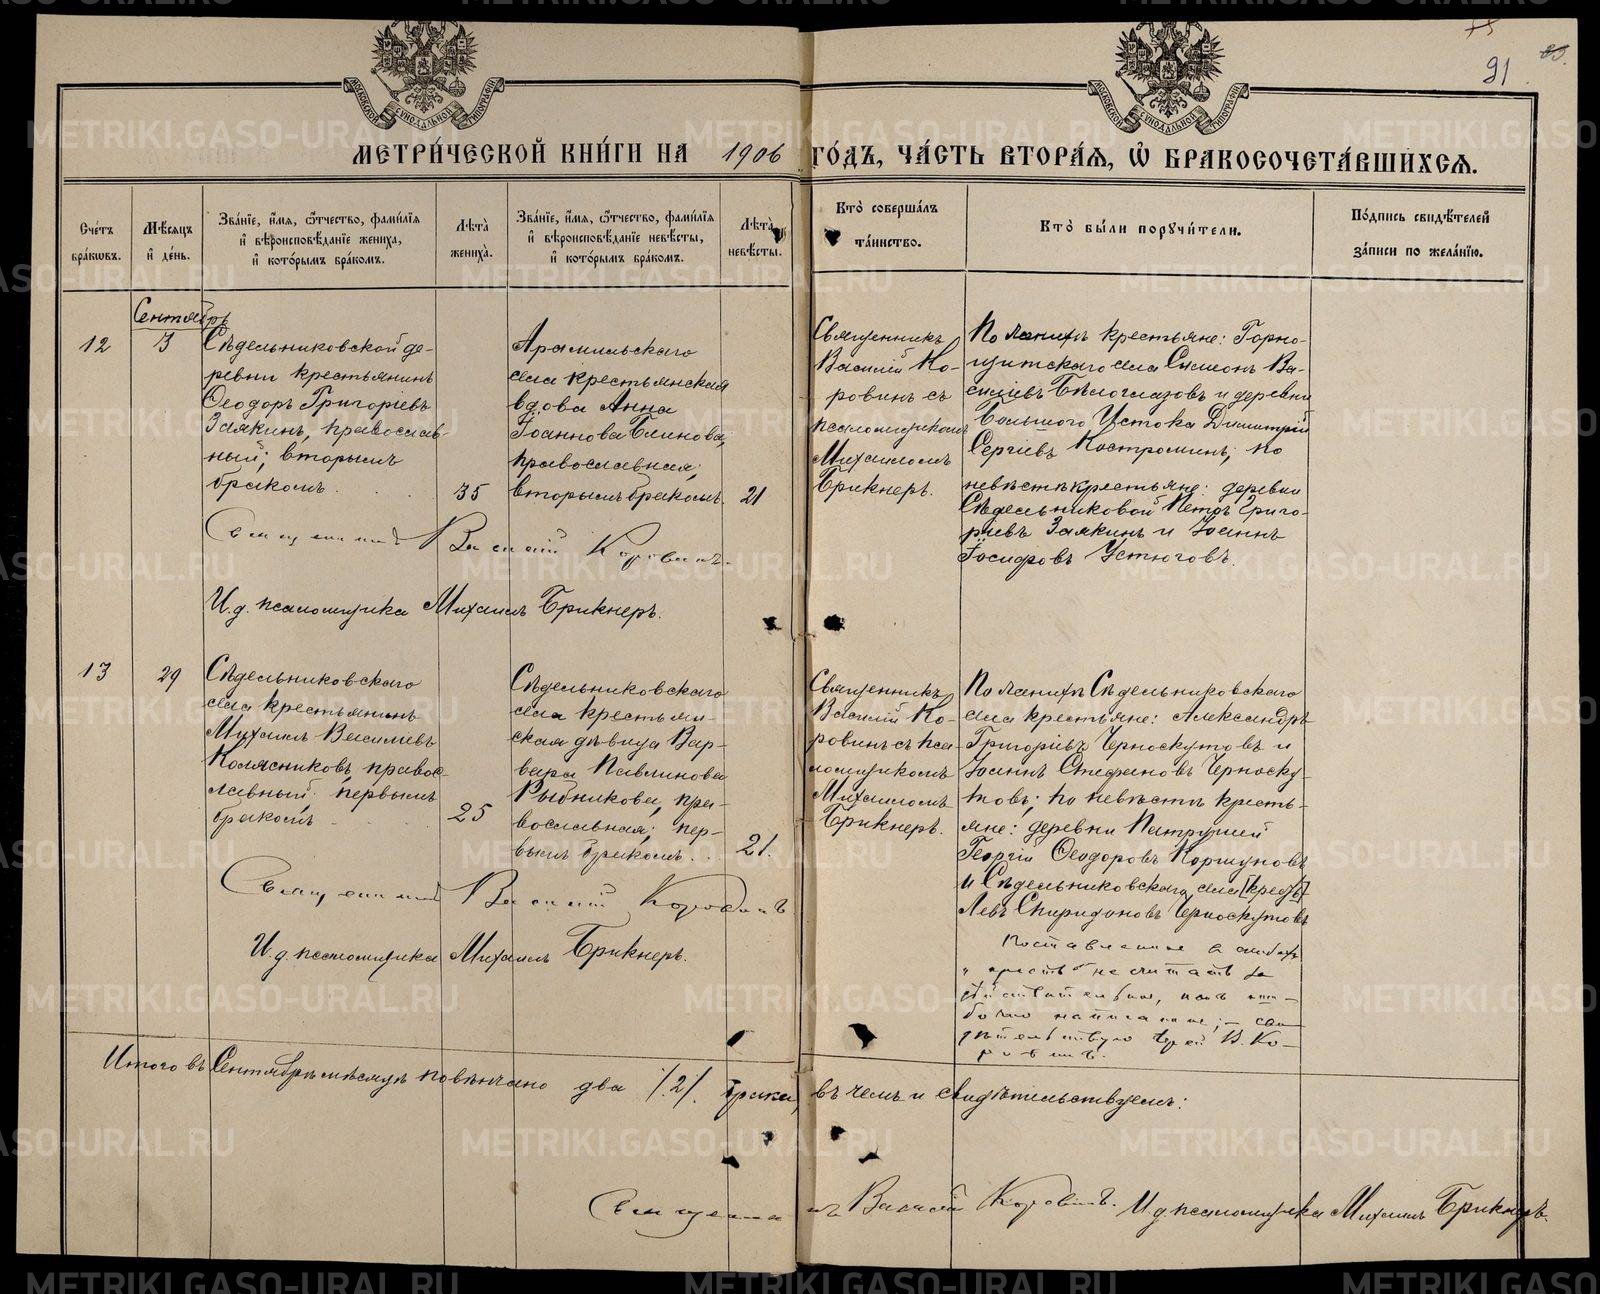 91
МОСКОВСКОЙ СѴНОДАЛЬНОЙ ТИПОГРАФІИ
МОСКОВСКОЙ СѴНОДАЛЬНОЙ ТИПОГРАФІИ
МЕТРИ́ЧЕСКОЙ КНИ́ГИ НА 1906 ГО́ДЪ, ЧА́СТЬ ВТОРА́Ѧ, Ѽ БРАКОСОЧЕТА́ВШИХСѦ.
Сче́тъ бра́кѡвъ.
Мѣ́сяцъ и҆ де́нь.
Зва́нїе, и҆́мѧ, ѻ҆́тчество, фами́лїѧ и҆ вѣроисповѣ́данїе жениха̀, и҆ кото́рымъ бра́комъ.
Лѣ́та жениха̀.
Зва́нїе, и҆́мѧ, ѻ҆́тчество, фами́лїѧ и҆ вѣроисповѣ́данїе невѣ́сты, и҆ кото́рымъ бра́комъ.
Лѣ́та невѣ́сты.
Кто̀ соверша́лъ та́инство.
Кто̀ бы́ли порꙋчи́тели.
По́дпись свидѣ́телей за́писи по жела́нїю.
Сентябрь
12
3
Сѣдельниковской де-
ревни крестьянинъ
Ѳеодоръ Григоріевъ
Заякинъ, православ-
ный; вторымъ
бракомъ.
35
Арамильскаго
села крестьянская
вдова Анна
Іоаннова Блинова
православная;
вторымъ бракомъ.
21
Священникъ
Василій Ко-
ровинъ съ
псаломщикомъ
Михаиломъ
Брикнеръ.
По женихѣ крестьяне: Горно-
щитскаго села Симонъ Ва-
силіевъ Бѣлоглазовъ и деревни
Большого Истока Димитрій
Сергіевъ Костроминъ; по
невѣстѣ крестьяне: деревни
Сѣдельниковой Петръ Григо-
ріевъ Заякинъ и Іоаннъ
Іосифовъ Устюговъ.
Священникъ Василій Коровинъ.
И.д. псаломщика Михаилъ Брикнеръ.
13
29
Сѣдельниковскаго
села крестьянинъ
Михаилъ Васильевъ
Колясниковъ, правос-
лавный; первымъ
бракомъ
25
Сѣдельниковскаго
села крестьян-
ская дѣвица Вар-
вара Павлинова
Рыбникова, пра-
вославная; пер-
вымъ бракомъ.
21.
Священникъ
Василій Ко-
ровинъ съ пса-
ломщикомъ
Михаиломъ
Брикнеръ.
По женихѣ Сѣдельниковскаго
села крестьяне: Александръ
Григоріевъ Черноскутовъ и
Іоаннъ Стефановъ Черноску-
товъ; по невѣстѣ кресть-
яне: деревни Патрушей
Георгій Ѳеодоровъ Коршуновъ
и Сѣдельниковскаго села [кресть]
Левъ Спиридоновъ Черноскутовъ
Поставленное в скобахъ
„кресть“ не считать за
дѣйствительное, какъ оши-
бочно написанное; — сви-
дѣтельствую Іерей В. Ко-
ровинъ.
Священникъ Василій Коровинъ
И.д. псаломщика Михаилъ Брикнеръ.
Итого въ Сентябрѣ мѣсяцѣ повѣнчано два /2/. брака, въ чемъ и свидѣтельствуемъ:
Священникъ Василій Коровинъ. И.д. псаломщика Михаилъ Брикнеръ.
METRIKI.GASO-URAL.RU